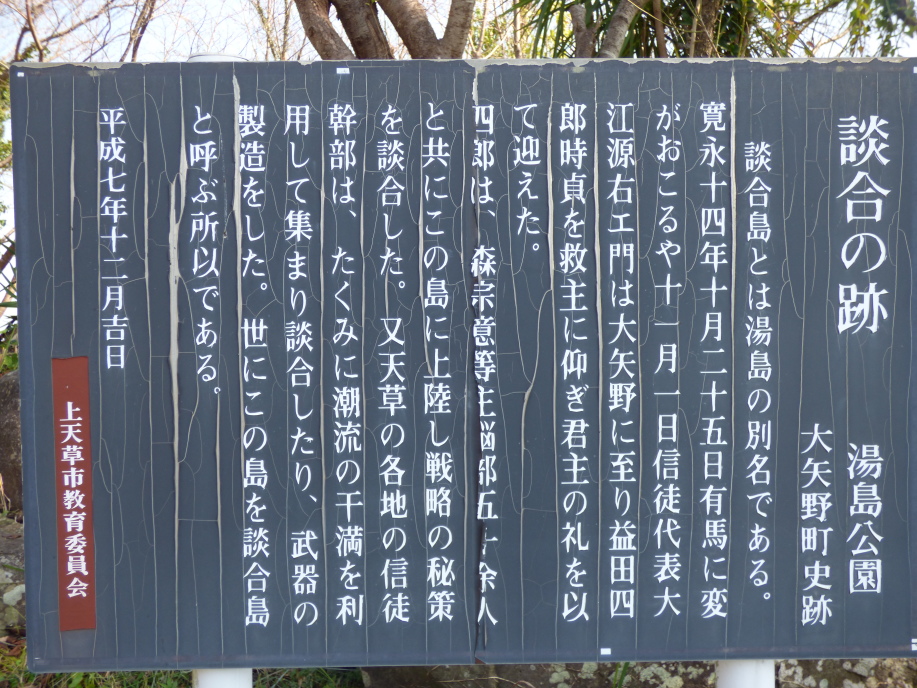 談合の跡
湯島公園
大矢野町史跡
談合島とは湯島の別名である。
寛永十四年十月二十五日有馬に変
がおこるや十一月一日信徒代表大
江源右エ門は大矢野に至り益田四
郎時貞を救主に仰ぎ君主の礼を以
て迎えた。
四郎は、森宗意等主脳部五十余人
と共にこの島に上陸し戦略の秘策
を談合した。又天草の各地の信徒
幹部は、たくみに潮流の干満を利
用して集まり談合したり、武器の
製造をした。世にこの島を談合島
と呼ぶ所以である。
平成七年十二月吉日
上天草市教育委員会